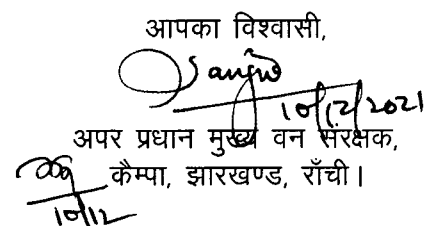 आपका विश्वासी,
10/12/2021
अपर प्रधान मुख्य वन संरक्षक,
कैम्पा, झारखण्ड, राँची।
10/12